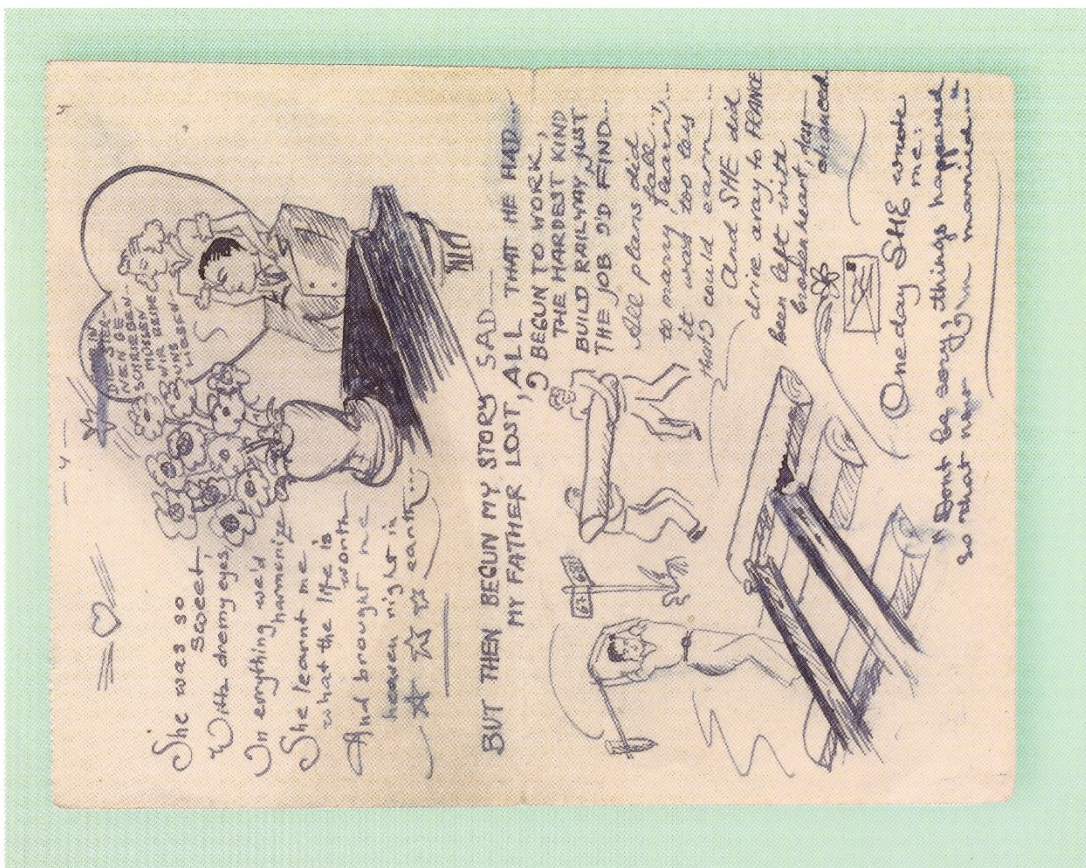 - 4 -
She was so
sweet
With dremy eyes,
In erything we'd
harmonize
She learnt me
what the life is
worth
And brought me
heaven right in
earth...
IN
DIE STER-
NEN GE-
SCHRIEBEN
MÜSEN
WIR BEIDE
UNS
LIEBEN
BUT THEN BEGUN MY STORY SAD
MY FATHER LOST, ALL THAT HE HAD...
I BEGUN TO WORK,
THE HARDEST KIND
BUILD RAILWAY, JUST
THE JOB I'D FIND...
All plans did
fall...,
to marry, learn,
it was too less
that I could earn...
And SHE did
drive away to FRANCE
been left with
brokenheart, less
chanced.
One day SHE wrote
me:
"Dont be sorry, things happened
so what now I'm married